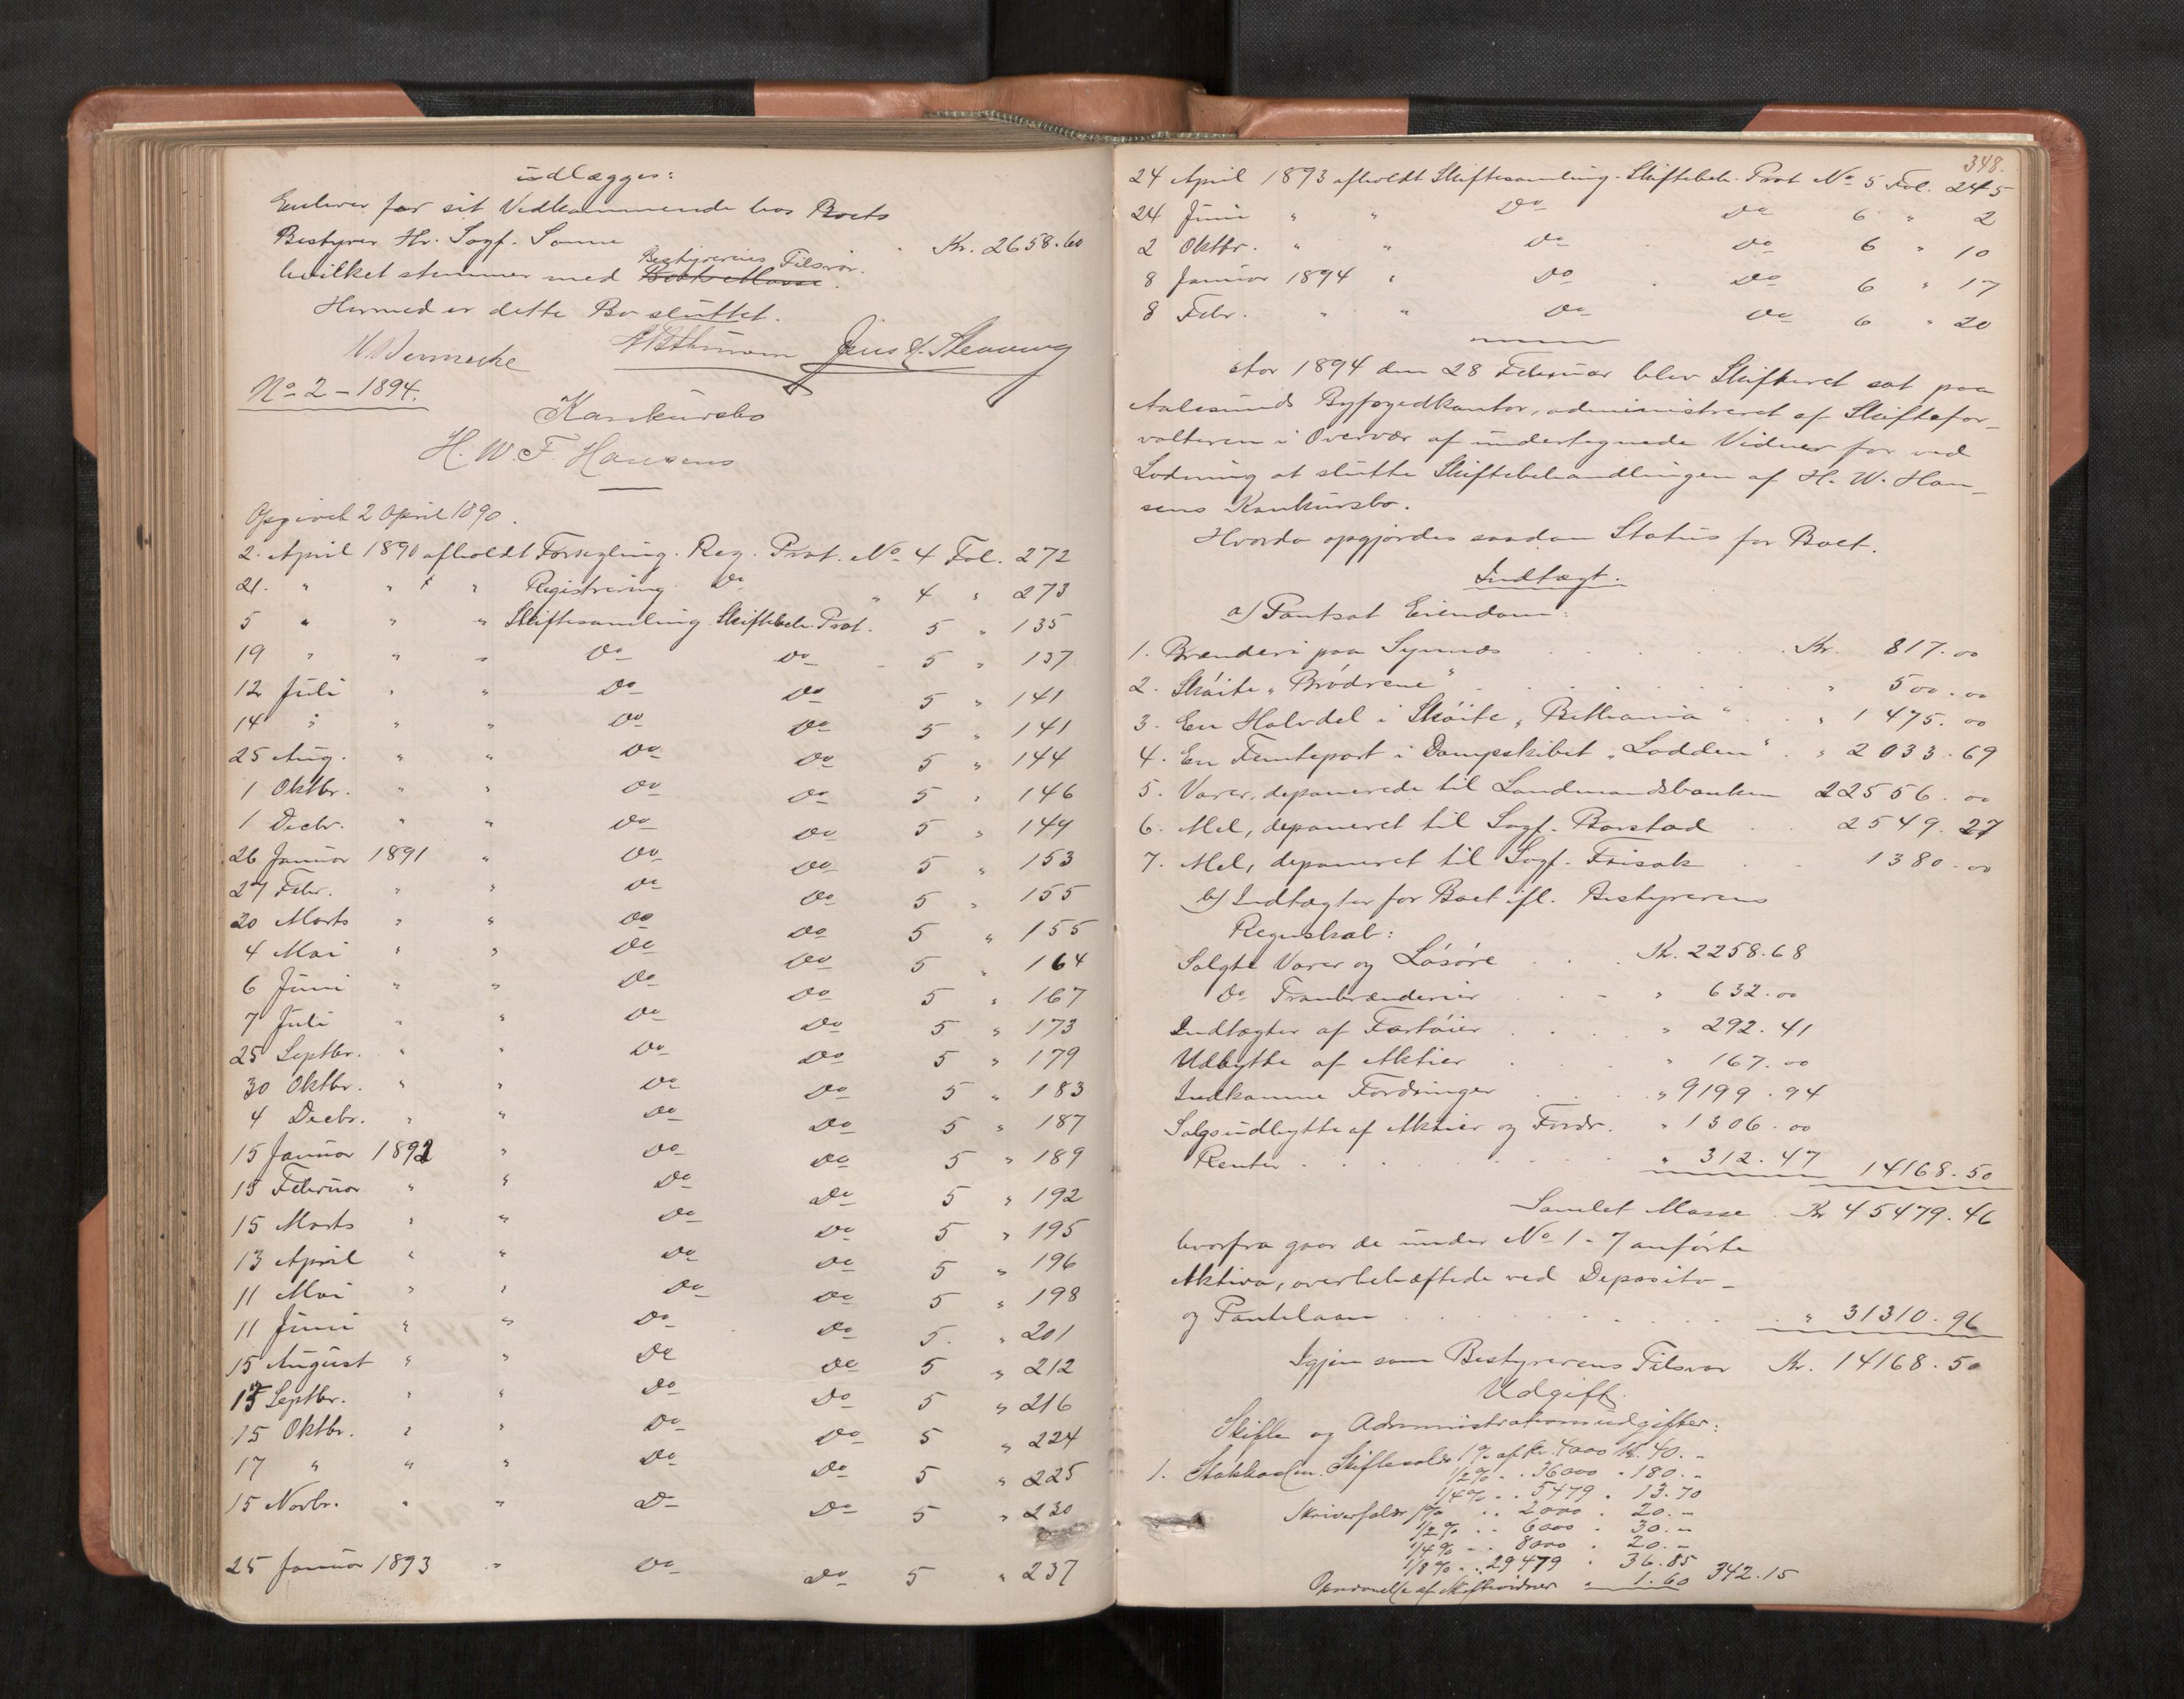 udlægges:
Enhver for sit Vedkommende hos Boets
Bestyrer Hr. Sagf. Sanne . Kr. 2658.60
Bestyrerens Tilsvar.
hvilket stemmer med Boets Masse.
Hermed er dette Bo sluttet.
No 2 – 1894.
Konkursbo
H. W. F. Hansens
Opgivet 2 April 1890.
2. April 1890 afholdt Forsegling. Reg. Prot. No 4 Fol. 272
21. " " " Registrering Do " 4 " 273
5 " " " Skiftesamling Skiftebeh. Prot. 5 " 135
19 " " " Do Do - 5 " 137
12 Juli " " Do Do 5 " 141
14 " " " Do Do 5 " 141
25 Aug. " " Do Do 5 " 144
1 Oktbr. " " Do Do 5 " 146
1 Decbr. " " Do Do 5 " 149
26 Januar 1891 " Do Do 5 " 153
27 Febr. " " Do Do 5 " 155
20 Marts " " Do Do 5 " 155
4 Mai " " Do Do 5 " 164
6 Juni " " Do Do 5 " 167
7 Juli " " Do Do 5 " 173
25 Septbr. " " Do Do 5 " 179
30 Oktbr. " " Do Do 5 " 183
4 Decbr. " " Do Do 5 " 187
15 Januar 1892 " Do Do 5 " 189
15 Februar " " Do Do 5 " 192
15 Marts " " Do Do 5 " 195
13 April " " Do Do 5 " 196
11 Mai " " Do Do 5 " 198
11 Juni " " Do Do 5. " 201
15 August " " Do Do 5 " 212
15 Septbr. " " Do Do 5 " 216
15 Oktbr. " " Do Do 5 " 224
17 " " " Do Do 5 " 225
15 Novbr. " " Do Do 5 " 230
25 Januar 1893 " Do Do 5 " 237
348.
24 April 1893 afholdt Skiftesamling. Skiftebeh. Prot No 5 Fol. 245
24 Juni " " Do Do 6 " 2
2 Oktbr. " " Do Do 6 " 10
8 Januar 1894 " Do Do 6 " 17
8 Febr. " " Do Do 6 " 20
Aar 1894 den 28 Februar blev Skifteret sat paa
Aalesunds Byfogedkontor, administreret af Skiftefor-
valteren i Overvær af undertegnede Vidner for ved
Lodning at slutte Skiftebehandlingen af H. W. Han-
sens Konkursbo.
Hvorda opgjordes saadan Status for Boet.
Indtægt.
a) Pantsat Eiendom:
1. Brænderi paa Synnæs . . . Kr. 817.00
2. Skøite "Brødrene" . . . " 500.00
3. En Halvdel i Skøite "Bethania" . . " 1475.00
4. En Femtepart i Dampskibet "Lodden" . " 2033.69
5. Varer, deponerede til Landmandsbanken 22556.00
6. Mel, deponeret til Sagf. Barstad . . 2549.27
7. Mel, deponeret til Sagf. Frisak . . 1380.00
b) Indtægter for Boet ifl. Bestyrerens
Regnskab:
Solgte Varer og Løsøre . . . Kr. 2258.68
Do Tranbrænderier . . . " 632.00
Indtægter af Fartøier . . . " 292.41
Udbytte af Aktier . . . " 167.00
Indkomne Fordringer . . . " 9199.94
Salgsudbytte af Aktier og Fordr. " 1306.00
Renter . . . " 312.47 14168.50
Samlet Masse . Kr 45479.46
hvorfra gaar de under No 1-7 anførte
Aktiva, overbehæftede ved Deposito-
og Pantelaan . . . " 31310.96
Igjen som Bestyrerens Tilsvar Kr. 14168.50
Udgift.
Skifte og Administrationsudgifter:
1. Statskassen. Skiftesalær 1 % af Kr. 4000 Kr. 40.-
1/2 % - . 36000 " 180.-
1/4 % - . 5479 " 13.70
Skriversalær 1 % . . 2000 " 20.-
1/2 % . . 6000 " 30.-
1/4 % - . 8000 " 20.-
1/8 % - . 29479 " 36.85
af Skiftevidner " 1.60 342.15